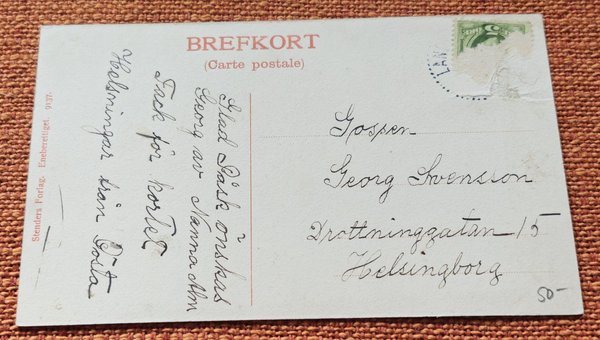 BREFKORT
(Carte postale)
Glad Påsk önskas
Georg av Nanna Alm
Tack för kortet
Helsningar från Gösta
Gossen
Georg Svensson
Drottninggatan 15
Helsingborg
Stenders Forlag. Eneberettiget. 9137.
50-